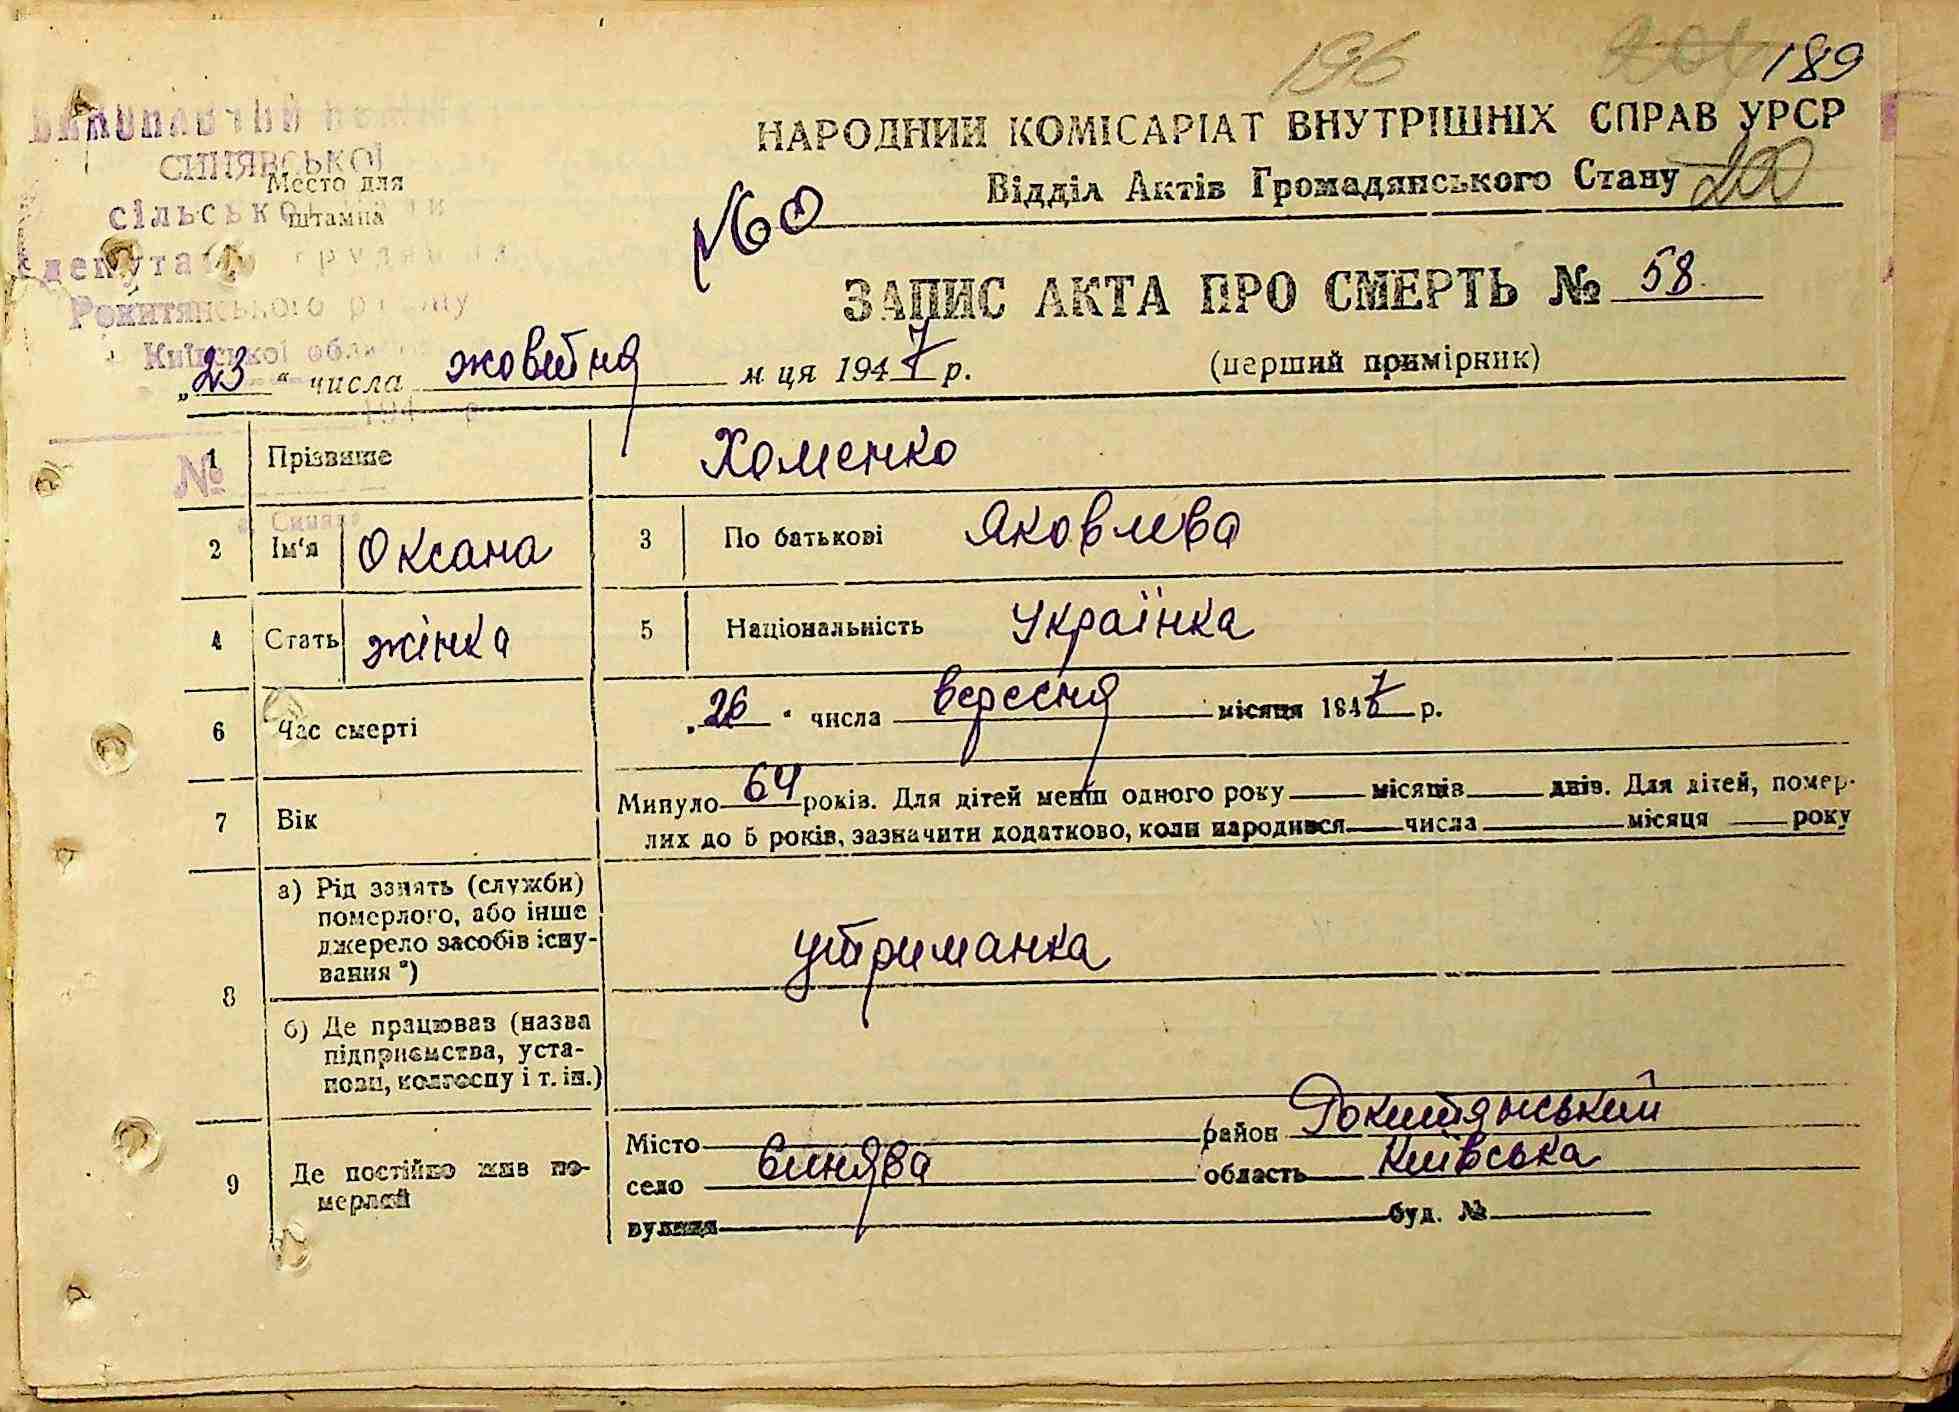 196 204 189
НАРОДНИЙ КОМІСАРІАТ ВНУТРІШНІХ СПРАВ УРСР
Відділ Актів Громадянського Стану 200
СИНЯВСЬКОЇ
Место для
штампа
сільської
депутатів трудящих
Рокитянського району
Київської області
ЗАПИС АКТА ПРО СМЕРТЬ № 58
„23“ числа жовтня м ця 1947 р. (перший примірник)
194 р.
№
с. Синява
1 Прізвище Хоменко
2 Ім'я Оксана 3 По батькові Яковлева
4 Стать жінка 5 Національність Українка
6 Час смерті „26“ числа вересня місяця 1947 р.
7 Вік Минуло 64 років. Для дітей менш одного року місяців днів. Для дітей, помер-
лих до 5 років, зазначити додатково, коли народився числа місяця року
8 а) Рід занять (служби)
померлого, або інше
джерело засобів існу-
вання*) утриманка
б) Де працював (назва
підприємства, уста-
нови, колгоспу і т. ін.)
9 Де постійно жив по-
мерлий
Місто район Рокитянський
село Синява область Київська
вулиця буд. №